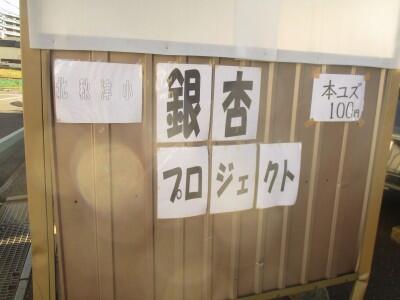 北秋津小
銀杏
プロジェクト
本ユズ
100円